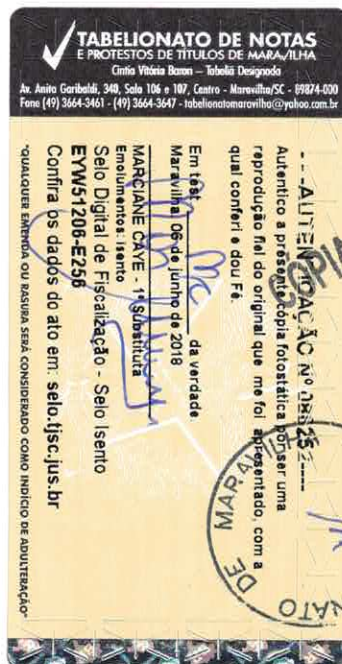 TABELIONATO DE NOTAS
E PROTESTOS DE TÍTULOS DE MARAVILHA
Cintia Vitória Baron - Tabeliã Designada
Av. Anita Garibaldi, 340, Sala 106 e 107, Centro - Maravilha/SC - 89874-000
Fone (49) 3664-3461 - (49) 3664-3647 - tabelionatomaravilha@yahoo.com.br
---AUTENTICAÇÃO Nº 08625
Autentico a presente cópia fotostática por ser uma
reprodução fiel do original que me foi apresentado, com a
qual conferi e dou Fé.
Em test. da verdade.
Maravilha, 06 de junho de 2018
MARCIANE CAYE - 1ª Substituta
Emolumentos: Isento
Selo Digital de Fiscalização - Selo Isento
EYW51206-E256
Confira os dados do ato em: selo.tjsc.jus.br
"QUALQUER EMENDA OU RASURA SERÁ CONSIDERADO COMO INDÍCIO DE ADULTERAÇÃO"
COPIA
DE MARAVILH